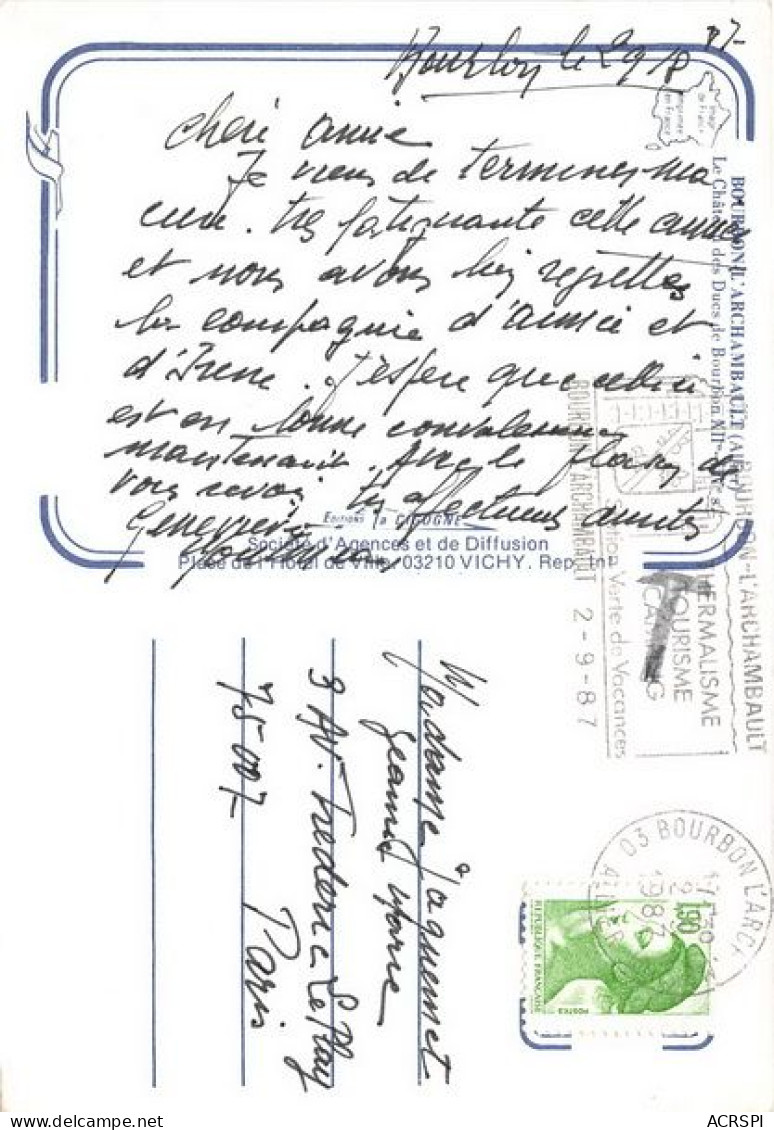 Bourbon le 2 9 87
Cheri amie
Je viens de terminer ma
cure. très fatiguante cette année
et nous avons bien regretter
la compagnie d'aimée et
d'Irene. J'espère que celle ci
est en bonne convalescence
maintenant. Avec le plaisir de
vous revoir. très affectueuses amitiés
Genevieve
BOURBON-L'ARCHAMBAULT (Allier)
Le Château des Ducs de Bourbon XIIe
Editions la CIGOGNE
Société d'Agences et de Diffusion
Place de l'Hôtel de Ville, 03210 VICHY. Rep. Int
BOURBON-L'ARCHAMBAULT
THERMALISME
TOURISME
CAMPING
Station Verte de Vacances
BOURBON L'ARCHAMBAULT 2-9-87
T
Madame Jaquemet
Jeanne Marie
3 AV. Frederic Le Play
75007
Paris
03 BOURBON L'ARCH
17H30
2-9
1987
ALLIER
1,90
REPUBLIQUE FRANÇAISE
POSTES
ACRSPI